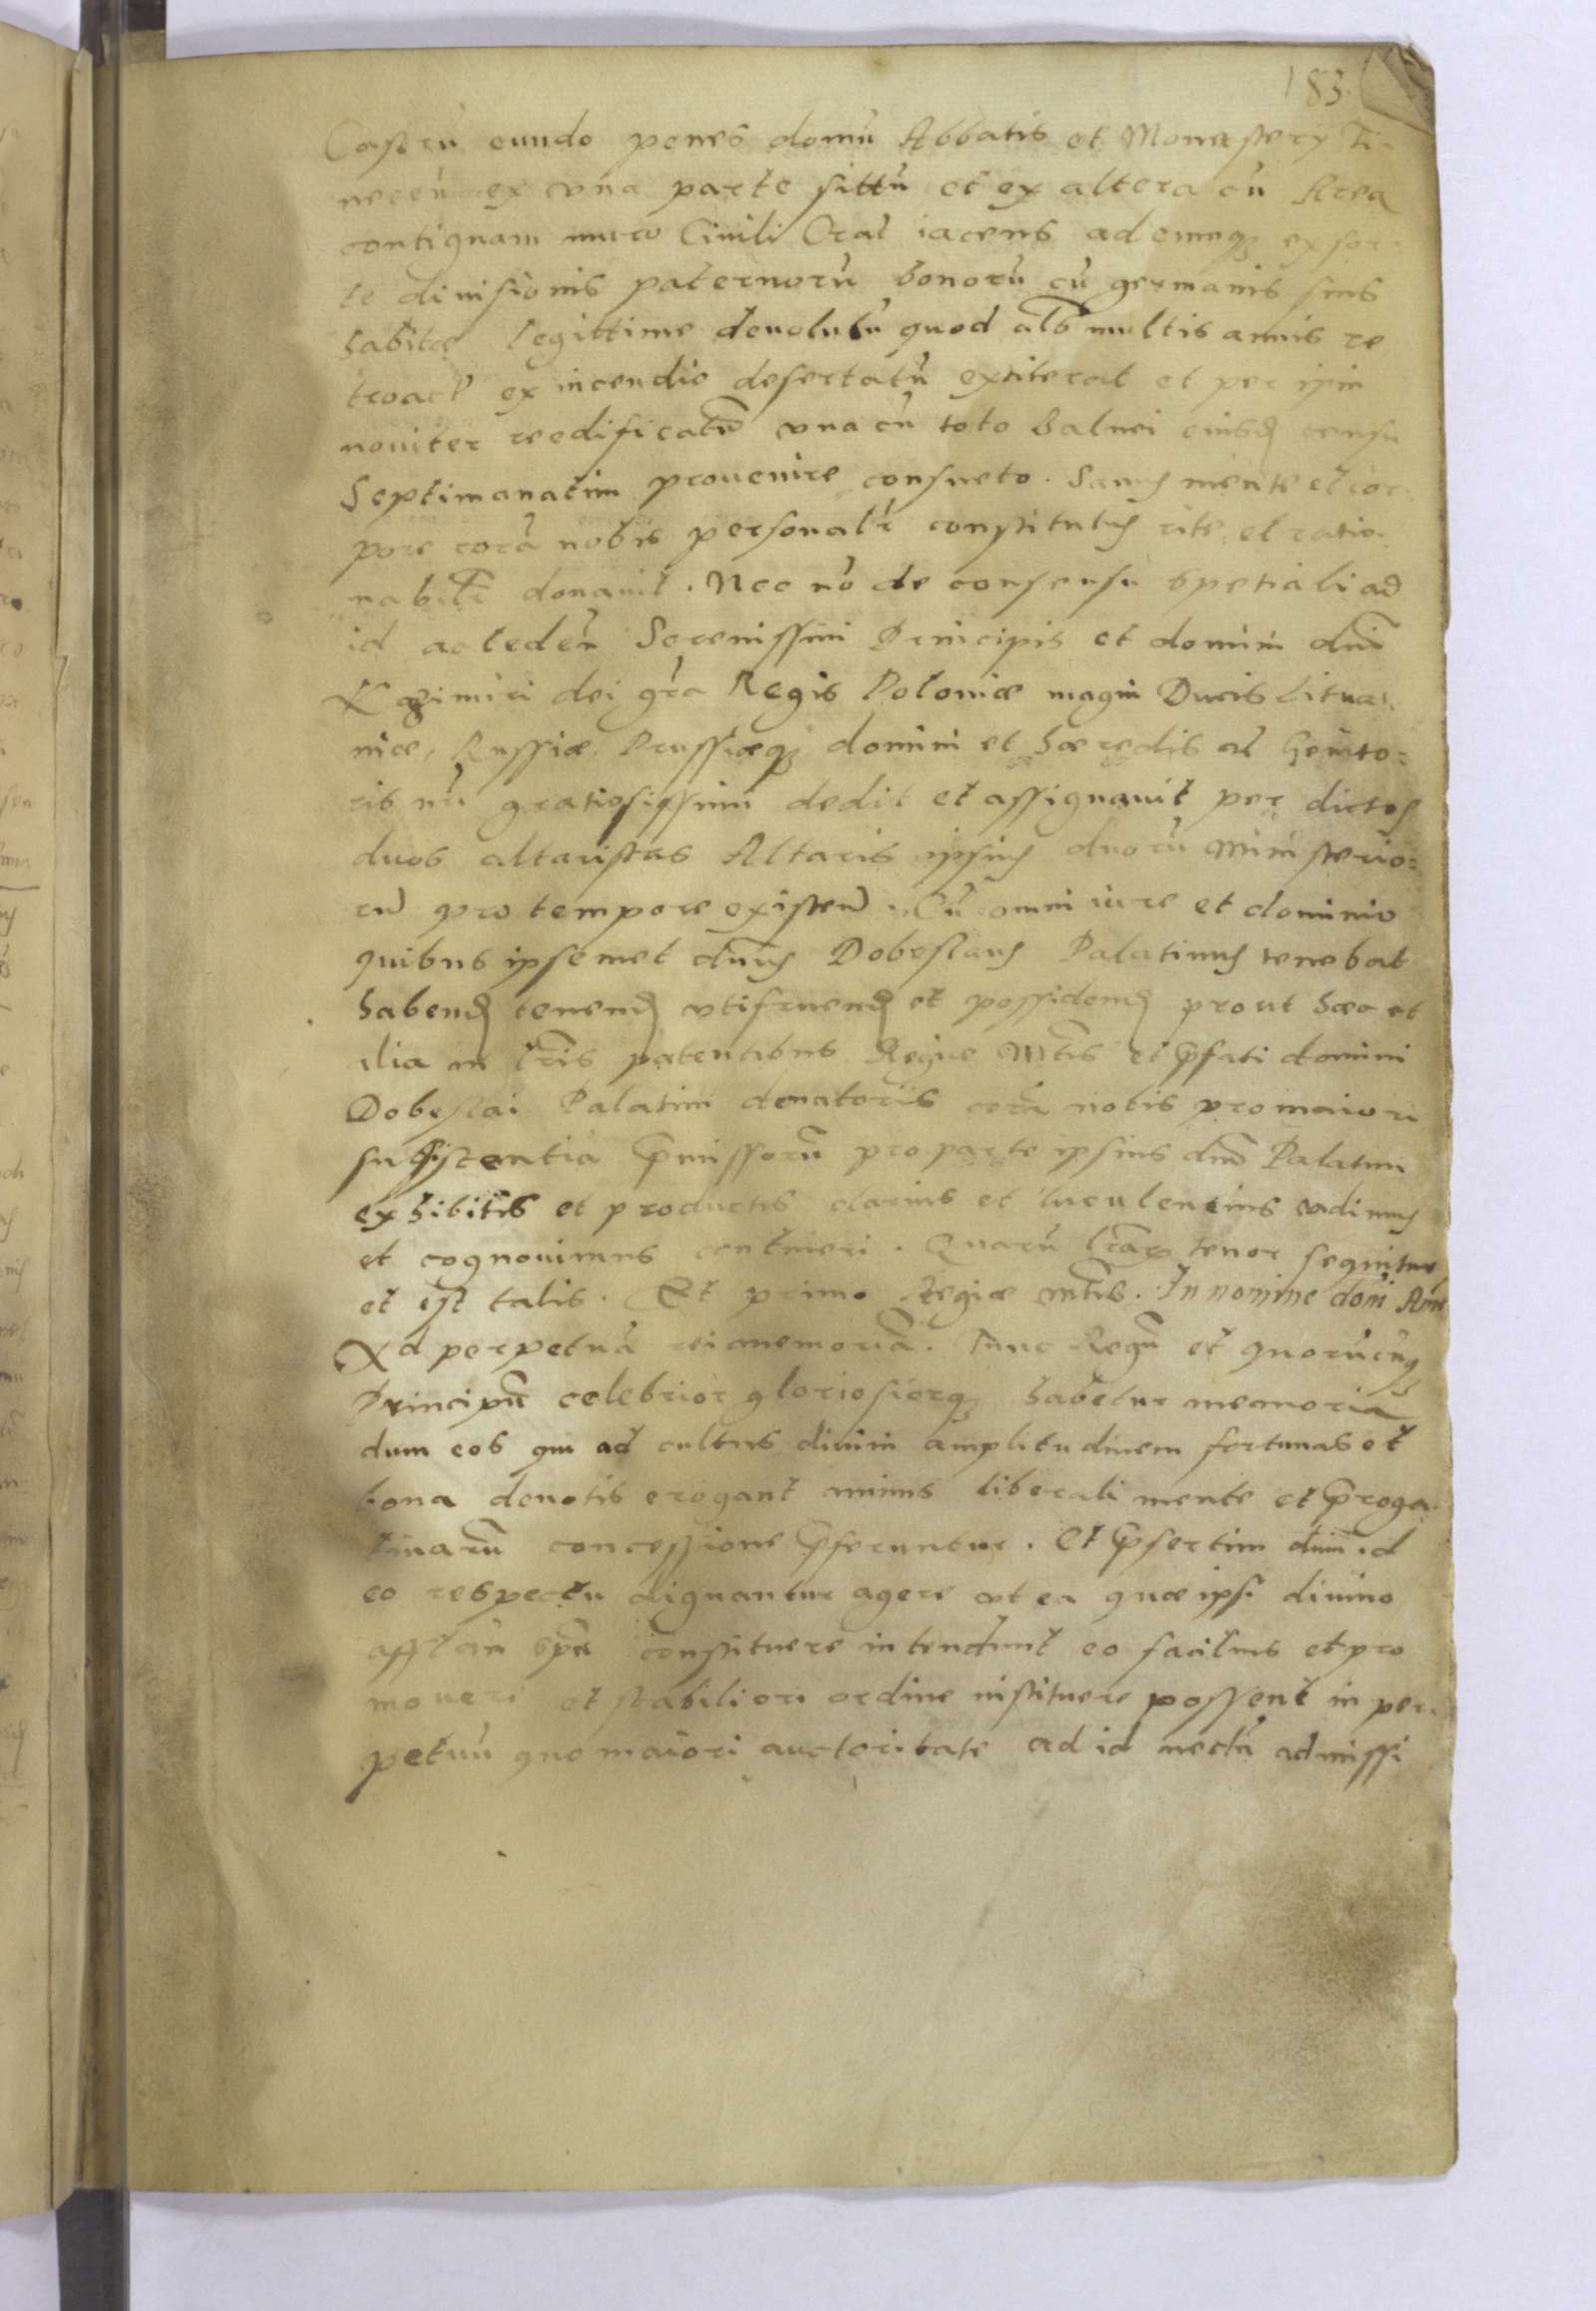 183.
Castrū eundo penes domū Abbatis et Monasterÿ Ti-
neceñ ex vna parte sittū et ex altera cū Area
contiguam muro Ciuili Crac̄ iacens ad eumq₃ ex sor-
te diuisionis paternorū bonorū cū germanis suis
habitæ legittime deuolutū quod al̄s multis annis re
troact̄ ex incendio desertatū extiterat et per ip̄m
nouiter reedificatū vna cū toto balnei eiusd̄ censu
Septimanatim prouenire consueto. Sanus mente et cor-
pore corā nobis personalr̄ constitutus rite et ratio-
nabilr̄ donauit. Nec nō de consensu spetiali ad
id accedeñ Serenissimi Principis et domini dn̄i
Kazimiri dei gr̄a Regis Poloniæ magni Ducis Litua-
niæ, Russiæ Prussiæq₃ domini et hæredis al̄ Genito-
ris nr̄i gratiosissimi dedit et assignauit per dictos
duos altaristas Altaris ipsius duorū ministerio-
rū pro tempore existen̄. Cū omni iure et dominio
quibus ipsemet dn̄us Dobeslaus Palatinus tenebat
habend̄ tenend̄ vtifruend̄ et possidend̄ prout hæc et
alia in lr̄is patentibus Regiæ Mt̄is et p̄fati domini
Dobeslai Palatini donatoris corā nobis pro maiori
subsistentia p̄missorū pro parte ipsius dn̄i Palatini
exhibitis et productis clarius et luculentius vidimus
et cognouimus contineri. Quarū lr̄ar₃ tenor sequitur
et est talis. Et primo Regiæ mt̄is. In nomine dom̄i Am̄e
Ad perpetuā rei memoriā. Tunc Regū et quorūcūq₃
Principū celebrior gloriosiorq₃ habetur memoria
dum eos qui ad cultus diuini amplitudinem fortunas et
bona deuotis erogant animis liberali mente et p̄roga-
tiuarū concessione p̄feruntur. Et p̄sertim dum id
eo respectu dignantur agere vt ea quæ ipsi diuino
afflati sp̄u constituere intendunt eo facilius et pro
moueri et stabiliori ordine instituere possent in per-
petuū quo maiori auctoritate ad id admissi